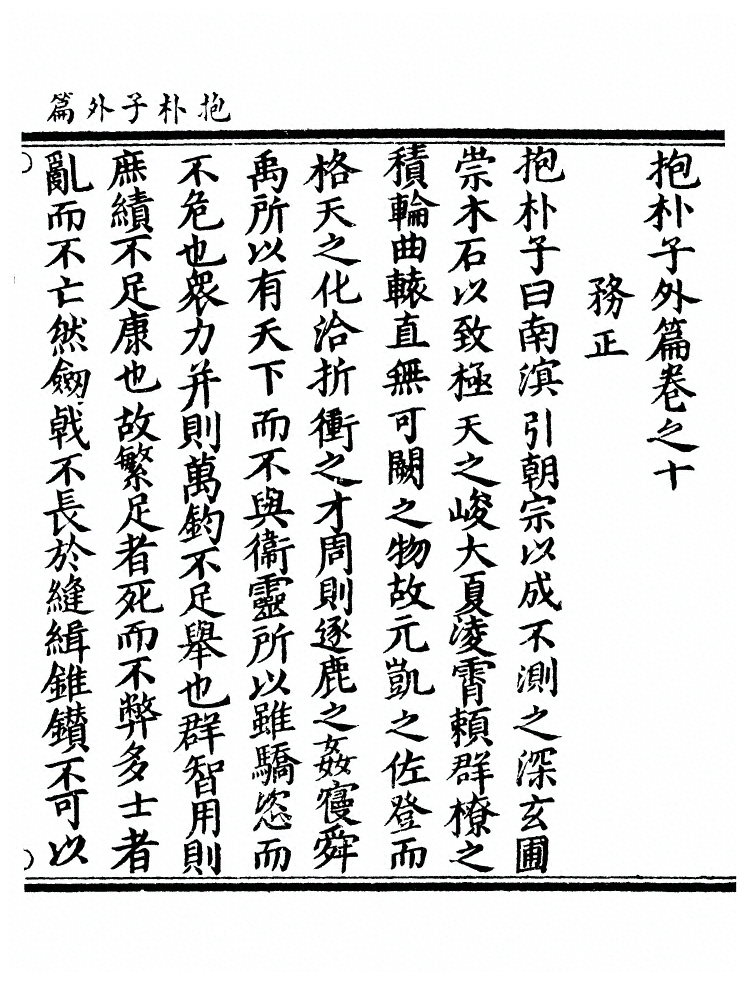 抱朴子外篇
抱朴子外篇卷之十
務正
抱朴子曰南溟引朝宗以成不測之深玄圃
崇木石以致極天之峻大夏淩霄賴群橑之
積輪曲轅直無可闕之物故元凱之佐登而
格天之化洽折衝之才周則逐鹿之姦寑舜
禹所以有天下而不與衞靈所以雖驕恣而
不危也衆力并則萬鈞不足舉也群智用則
庶績不足康也故繁足者死而不弊多士者
亂而不亡然劒戟不長於縫緝錐鑚不可以